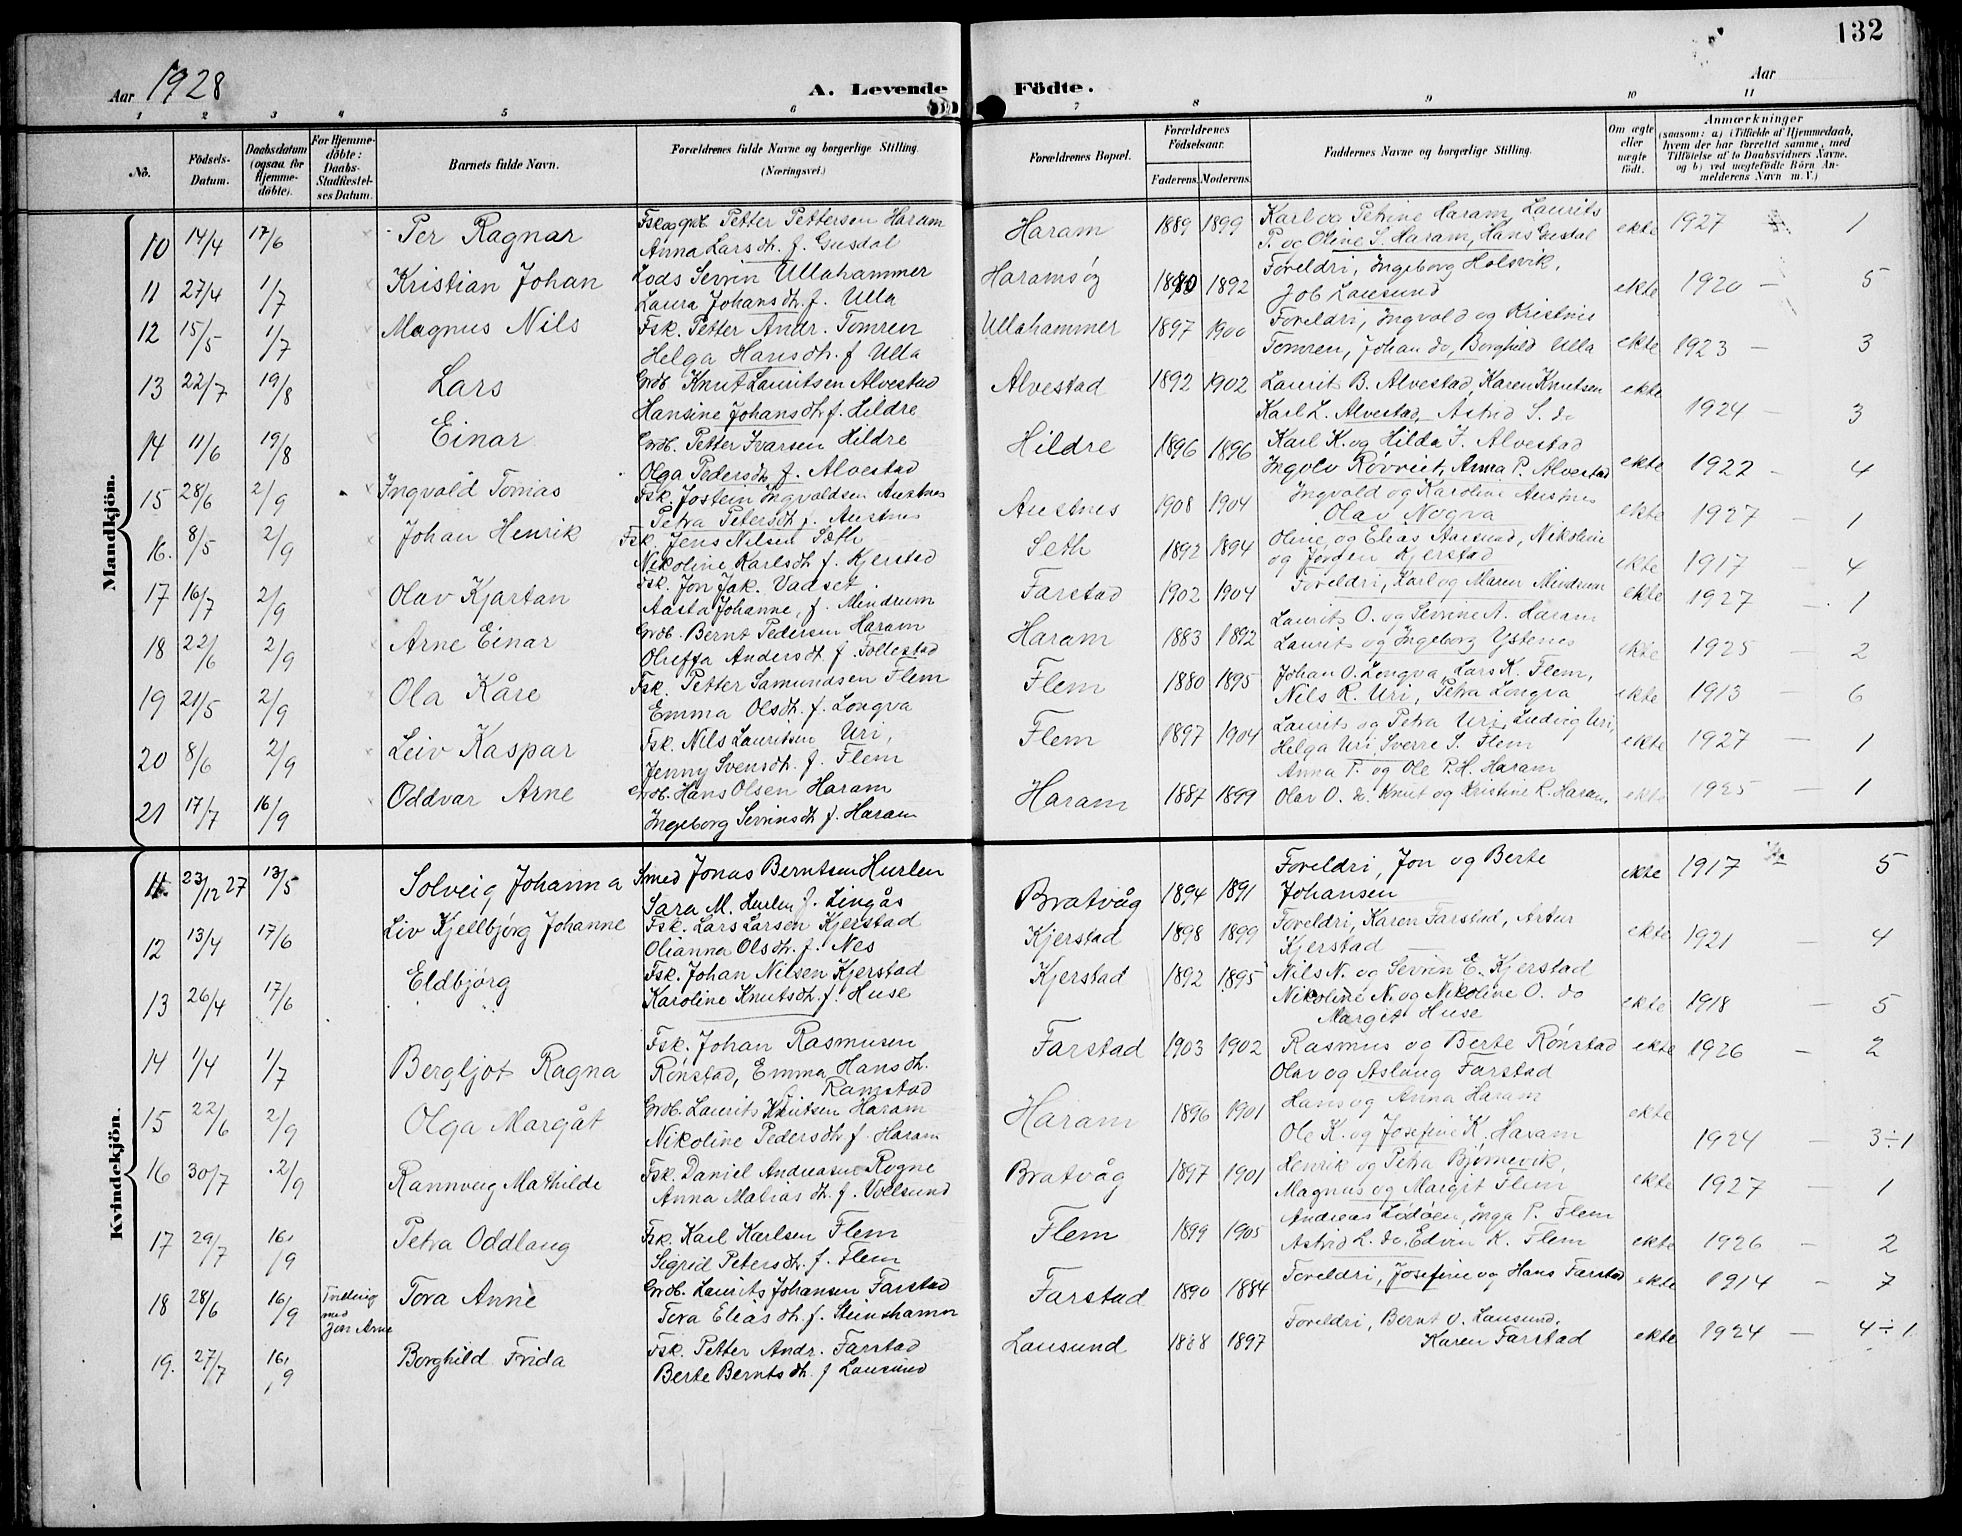 132
Aar 1928
A. Levende Födte.
Aar
1 2 3 4 5 6 7 8 9 10 11
No.
Födsels-Datum.
Daabsdatum (ogsaa for Hjemmedöbte).
For Hjemmedöbte: Daabs-Stadfæstelses Datum.
Barnets fulde Navn.
Forældrenes fulde Navne og borgerlige Stilling. (Næringsvei.)
Forældrenes Bopæl.
Forældrenes Födselsaar. Faderens. Moderens.
Faddernes Navne og borgerlige Stilling.
Om ægte eller uægte födt.
Anmærkninger (saasom: a) i Tilfælde af Hjemmedaab, hvem der har forrettet samme, med Tilföielse af to Daabsvidners Navne, og b) ved uægtefödte Börn Anmelderens Navn m. V.)
Mandkjön.
10 14/4 17/6 Per Ragnar Fsk og gmb. Petter Pettersen Haram Haram 1889 1899 Karl og Petrine Haram, Laurits ekte 1927 1
Anna Larsdtr. f. Gusdal P. og Oline S. Haram, Hans Gusdal
11 27/4 1/7 Kristian Johan Lods Servin Ullahammer Haramsøy 1880 1892 Foreldri, Ingeborg Holsvik, ekte 1920 – 5
Laura Johansdtr. f. Ulla Job Lausund
12 15/5 1/7 Magnus Nils Fsk. Petter Andr. Tomren Ullahammer 1897 1900 Foreldri, Ingvald og Kristine ekte 1923 – 3
Helga Hansdtr. f Ulla Tomren, Johan do, Borghild Ulla
13 22/7 19/8 Lars Grdb. Knut Lauritsen Alvestad Alvestad 1892 1902 Laurits B. Alvestad, Karen Knutsen ekte 1924 – 3
Hansine Johansdtr. f. Hildre Karl L. Alvestad, Astrid S. do
14 11/6 19/8 Einar Grdb. Petter Ivarsen Hildre Hildre 1896 1896 Karl K. og Hilda J. Alvestad ekte 1922 – 4
Olga Pedersdtr. f. Alvestad Ingolv Røvreit, Anna P. Alvestad
15 28/6 2/9 Ingvald Tomas Fsk. Jostein Ingvaldsen Austnes Austnes 1908 1904 Ingvald og Karoline Austnes ekte 1927 – 1
Petra Petersdtr. f. Austnes Olav Nogva
16. 8/5 2/9 Johan Henrik Fsk. Jens Nilsen Sæth Seth 1892 1894 Oline og Elias Aarsund, Nikoline ekte 1917 – 4
Nikoline Karlsdtr f. Kjerstad og Jørgen Kjerstad
17 16/7 2/9 Olav Kjartan Fsk. Jon Jak. Vadset Farstad 1902 1904 Foreldri, Karl og Maren Mindrum ekte 1927 – 1
Aasta Johanne, f. Mindrum
18 22/6 2/9 Arne Einar Grdb. Bernt Pedersen Haram Haram 1883 1892 Laurits O. og Sevrine A. Haram ekte 1925 – 2
Oleffa Andersdtr. f. Follestad Laurits og Ingeborg Ystenes
19 21/5 2/9 Ola Kåre Fsk. Petter Samundsen Flem Flem 1880 1895 Johan O. Longva, Lars K. Flem, ekte 1913 – 6
Emma Olsdtr. f. Longva Nils R. Uri, Petra Longva
20 8/6 2/9 Leiv Kaspar Fsk. Nils Lauritsen Uri, Flem 1897 1904 Laurits og Petra Uri, Ludvig Uri, ekte 1927 – 1
Jenny Svensdtr. f. Flem Helga Uri, Sverre S. Flem
21 17/7 16/9 Oddvar Arne Grdb. Hans Olsen Haram Haram 1887 1899 Anna P. og Ole P.H. Haram ekte 1925 – 1
Ingeborg Sevrinsdtr f. Haram Olav O. do. Knut og Kristine R. Haram
Kvindekjön.
11. 23/12 27 13/5 Solveig Johanna Smed Jonas Berntsen Hurlen Bratvåg 1894 1891 Foreldri, Jon og Berte ekte 1917 – 5
Sara M. Hurlen f. Lingås Johansen
12 13/4 17/6 Liv Kjellbjørg Johanne Fsk. Lars Larsen Kjerstad Kjerstad 1898 1899 Foreldri, Karen Farstad, Artur ekte 1921 – 4
Olianna Olsdtr. f. Nes Kjerstad
13 26/4 17/6 Eldbjörg Fsk. Johan Nilsen Kjerstad Kjerstad 1892 1895 Nils N. og Sevrin E. Kjerstad ekte 1918 – 5
Karoline Knutsdtr. f. Huse Nikoline N. og Nikoline O. do
Margit Huse
14 1/4 1/7 Bergljot Ragna Fsk. Johan Rasmusen Farstad 1903 1902 Rasmus og Berte Rönstad ekte 1926 – 2
Rönstad, Emma Hansdtr. Olav og Aslaug Farstad
f. Ramstad
15 22/6 2/9 Olga Margåt Grdb. Laurits Knutsen Haram Haram 1896 1901 Hans og Anna Haram ekte 1924 – 3÷1
Nikoline Pedersdtr f. Haram Ole K. og Josefine K. Haram
16 30/7 2/9 Rannveig Mathilde Fsk. Daniel Andreasen Rogne Bratvåg 1897 1901 Henrik og Petra Bjørnevik, ekte 1927 – 1
Anna Matiasdtr. f. Vollsund Magnus og Margit Flem
17 29/7 16/9 Petra Oddlaug Fsk. Karl Karlsen Flem Flem 1899 1905 Andreas Lødøen, Inga P. Flem ekte 1926 – 2
Sigrid Petersdtr. f. Flem Astrid L. do. Edvin K. Flem
18 28/6 16/9 Tvilling med Jon Arne Tora Anne Grdb. Laurits Johansen Farstad Farstad 1890 1884 Foreldri, Josefine og Hans Farstad ekte 1914 – 7
Tora Eliasdtr. f. Steinshamn
19. 27/7 16/9 Borghild Frida Fsk. Petter Andr. Farstad Lausund 1888 1897 Foreldri, Bernt O. Lausund, ekte 1924 – 4÷1
Berte Berntsdtr. f Lausund Karen Farstad